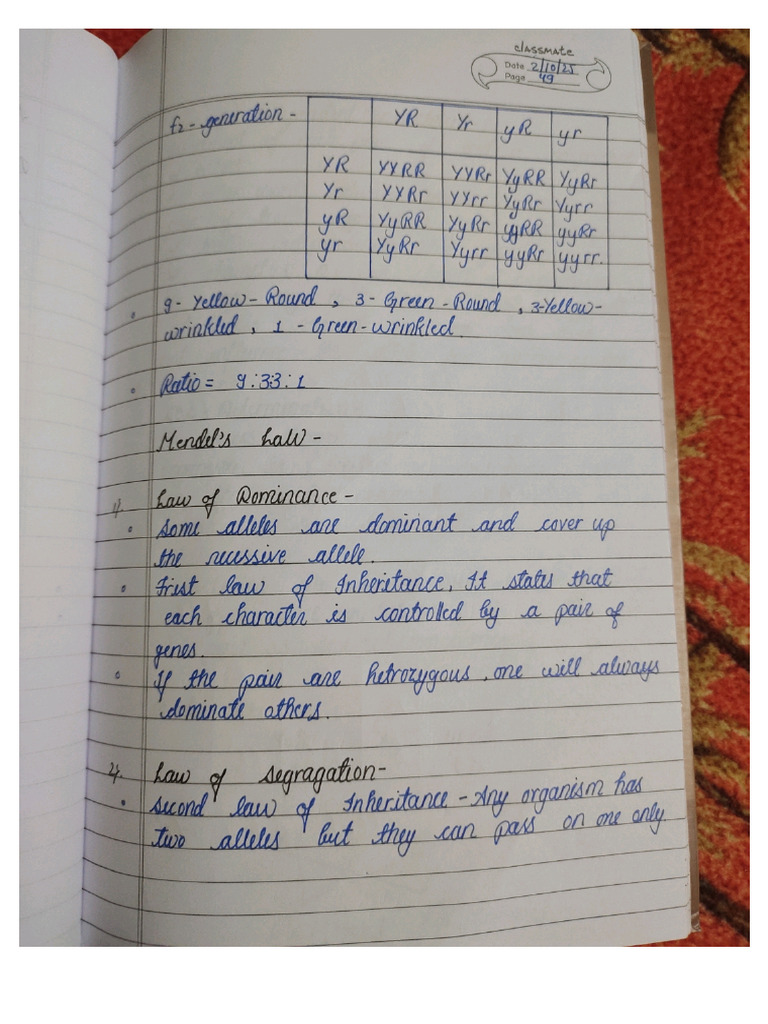 classmate
Date 2/10/25
Page 49
f2 - generation -
YR Yr yR yr
YR YYRR YYRr YyRR YyRr
Yr YYRr YYrr YyRr Yyrr
yR YyRR YyRr yyRR yyRr
yr YyRr Yyrr yyRr yyrr.
9 - Yellow - Round , 3 - Green - Round , 3-Yellow-
wrinkled , 1 - Green - wrinkled.
Ratio = 9:33:1
Mendel's Law -
1). Law of Dominance -
Some alleles are dominant and cover up
the recessive allele.
Frist law of Inheritance, It states that
each character is controlled by a pair of
genes.
If the pair are hetrozygous, one will always
dominate others.
2). Law of Segragation -
Second law of Inheritance - Any organism has
two alleles but they can pass on one only